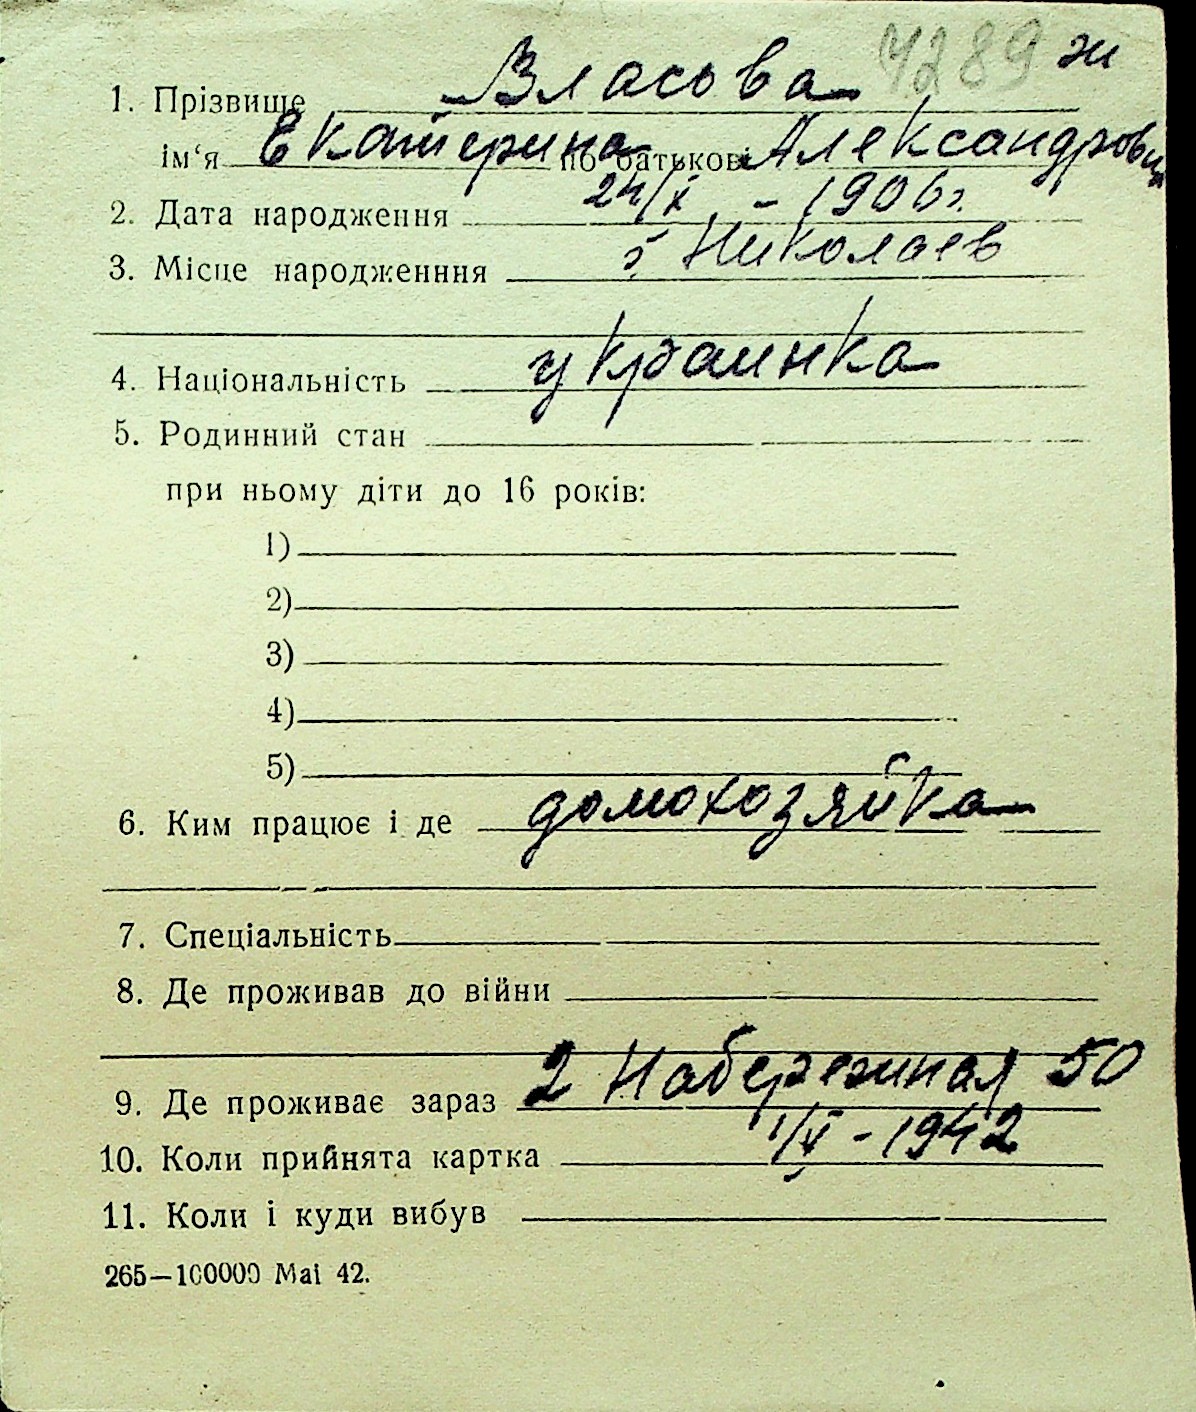 7289 ж
1. Прізвище Власова
ім‘я Екатерина по батькові Александровна
2. Дата народження 24/X - 1906 г.
3. Місце народженння г. Николаев
4. Національність украинка
5. Родинний стан
при ньому діти до 16 років:
1)
2)
3)
4)
5)
6. Ким працює і де домохозяйка
7. Спеціальність
8. Де проживав до війни
9. Де проживає зараз 2 Набережная 50
10. Коли прийнята картка 1/V - 1942
11. Коли і куди вибув
265—100000 Mai 42.